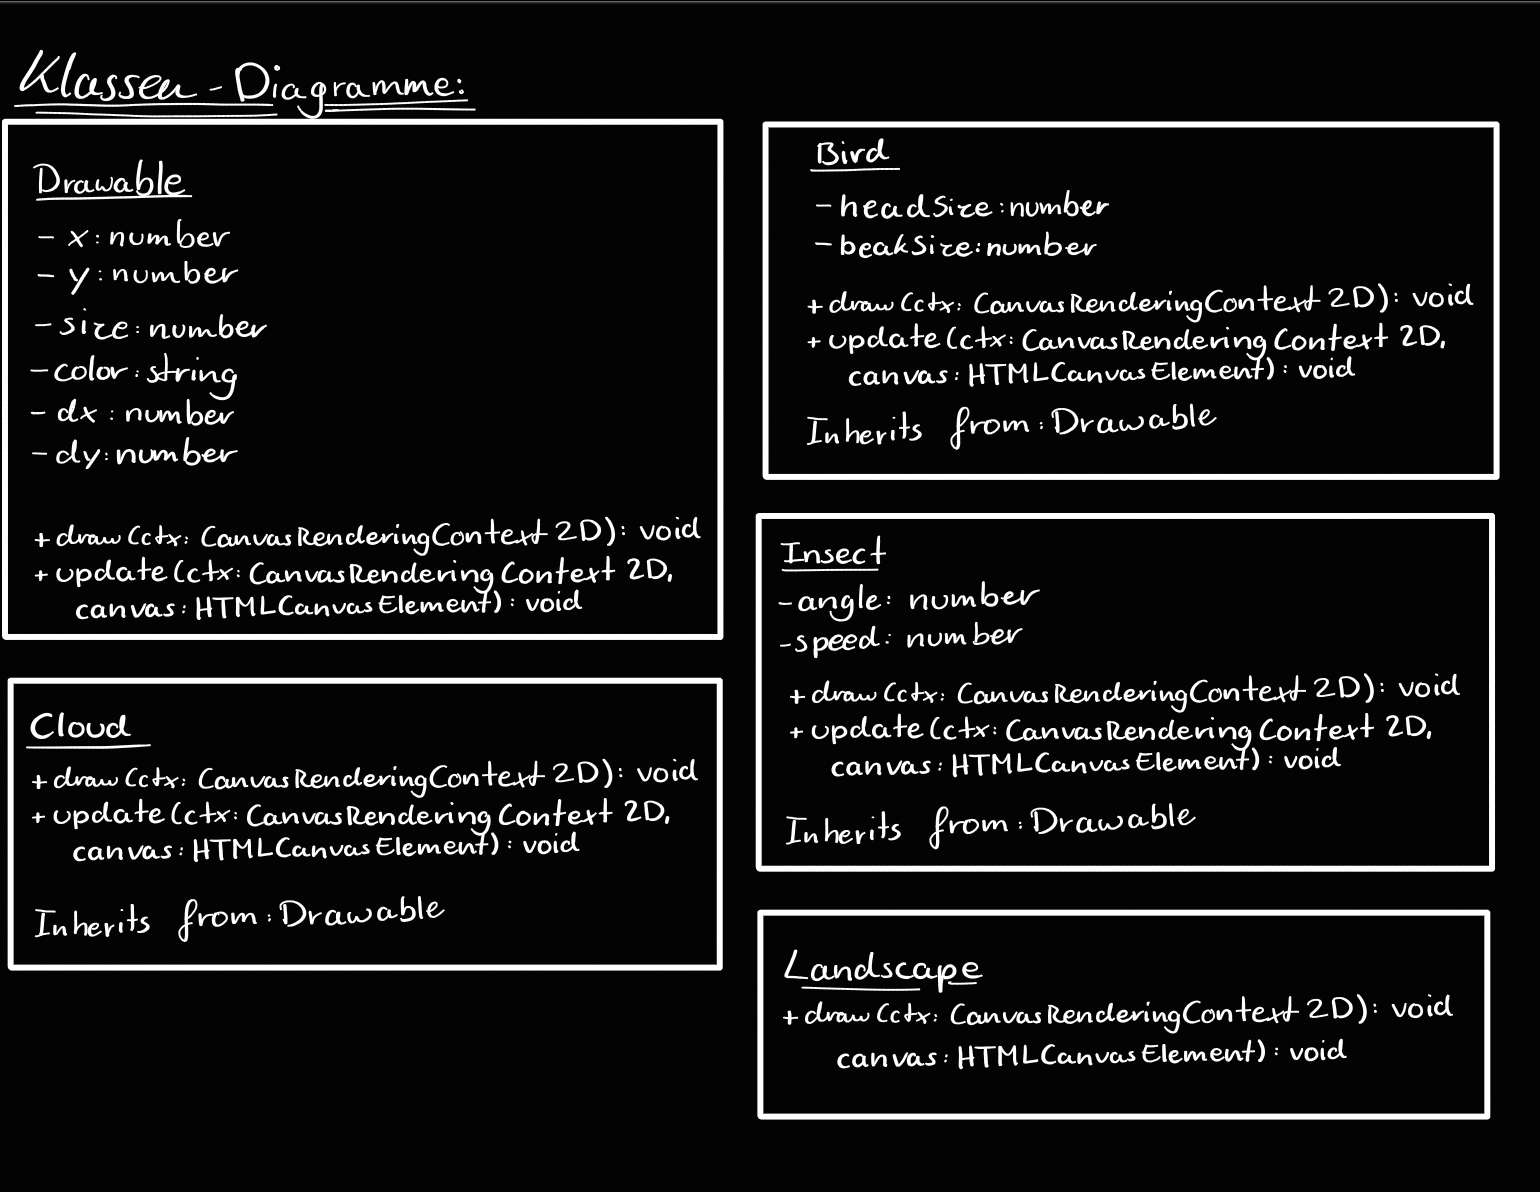 Klassen - Diagramme:
Drawable
- x: number
- y: number
- size: number
- color: string
- dx: number
- dy: number
+ draw (ctx: CanvasRenderingContext 2D): void
+ update (ctx: CanvasRendering Context 2D,
canvas: HTMLCanvasElement): void
Cloud
+ draw (ctx: CanvasRenderingContext 2D): void
+ update (ctx: CanvasRendering Context 2D,
canvas: HTMLCanvasElement): void
Inherits from: Drawable
Bird
- headSize: number
- beakSize: number
+ draw (ctx: CanvasRenderingContext 2D): void
+ update (ctx: CanvasRendering Context 2D,
canvas: HTMLCanvasElement): void
Inherits from: Drawable
Insect
- angle: number
- speed: number
+ draw (ctx: CanvasRenderingContext 2D): void
+ update (ctx: CanvasRendering Context 2D,
canvas: HTMLCanvasElement): void
Inherits from: Drawable
Landscape
+ draw (ctx: CanvasRenderingContext 2D): void
canvas: HTMLCanvasElement): void